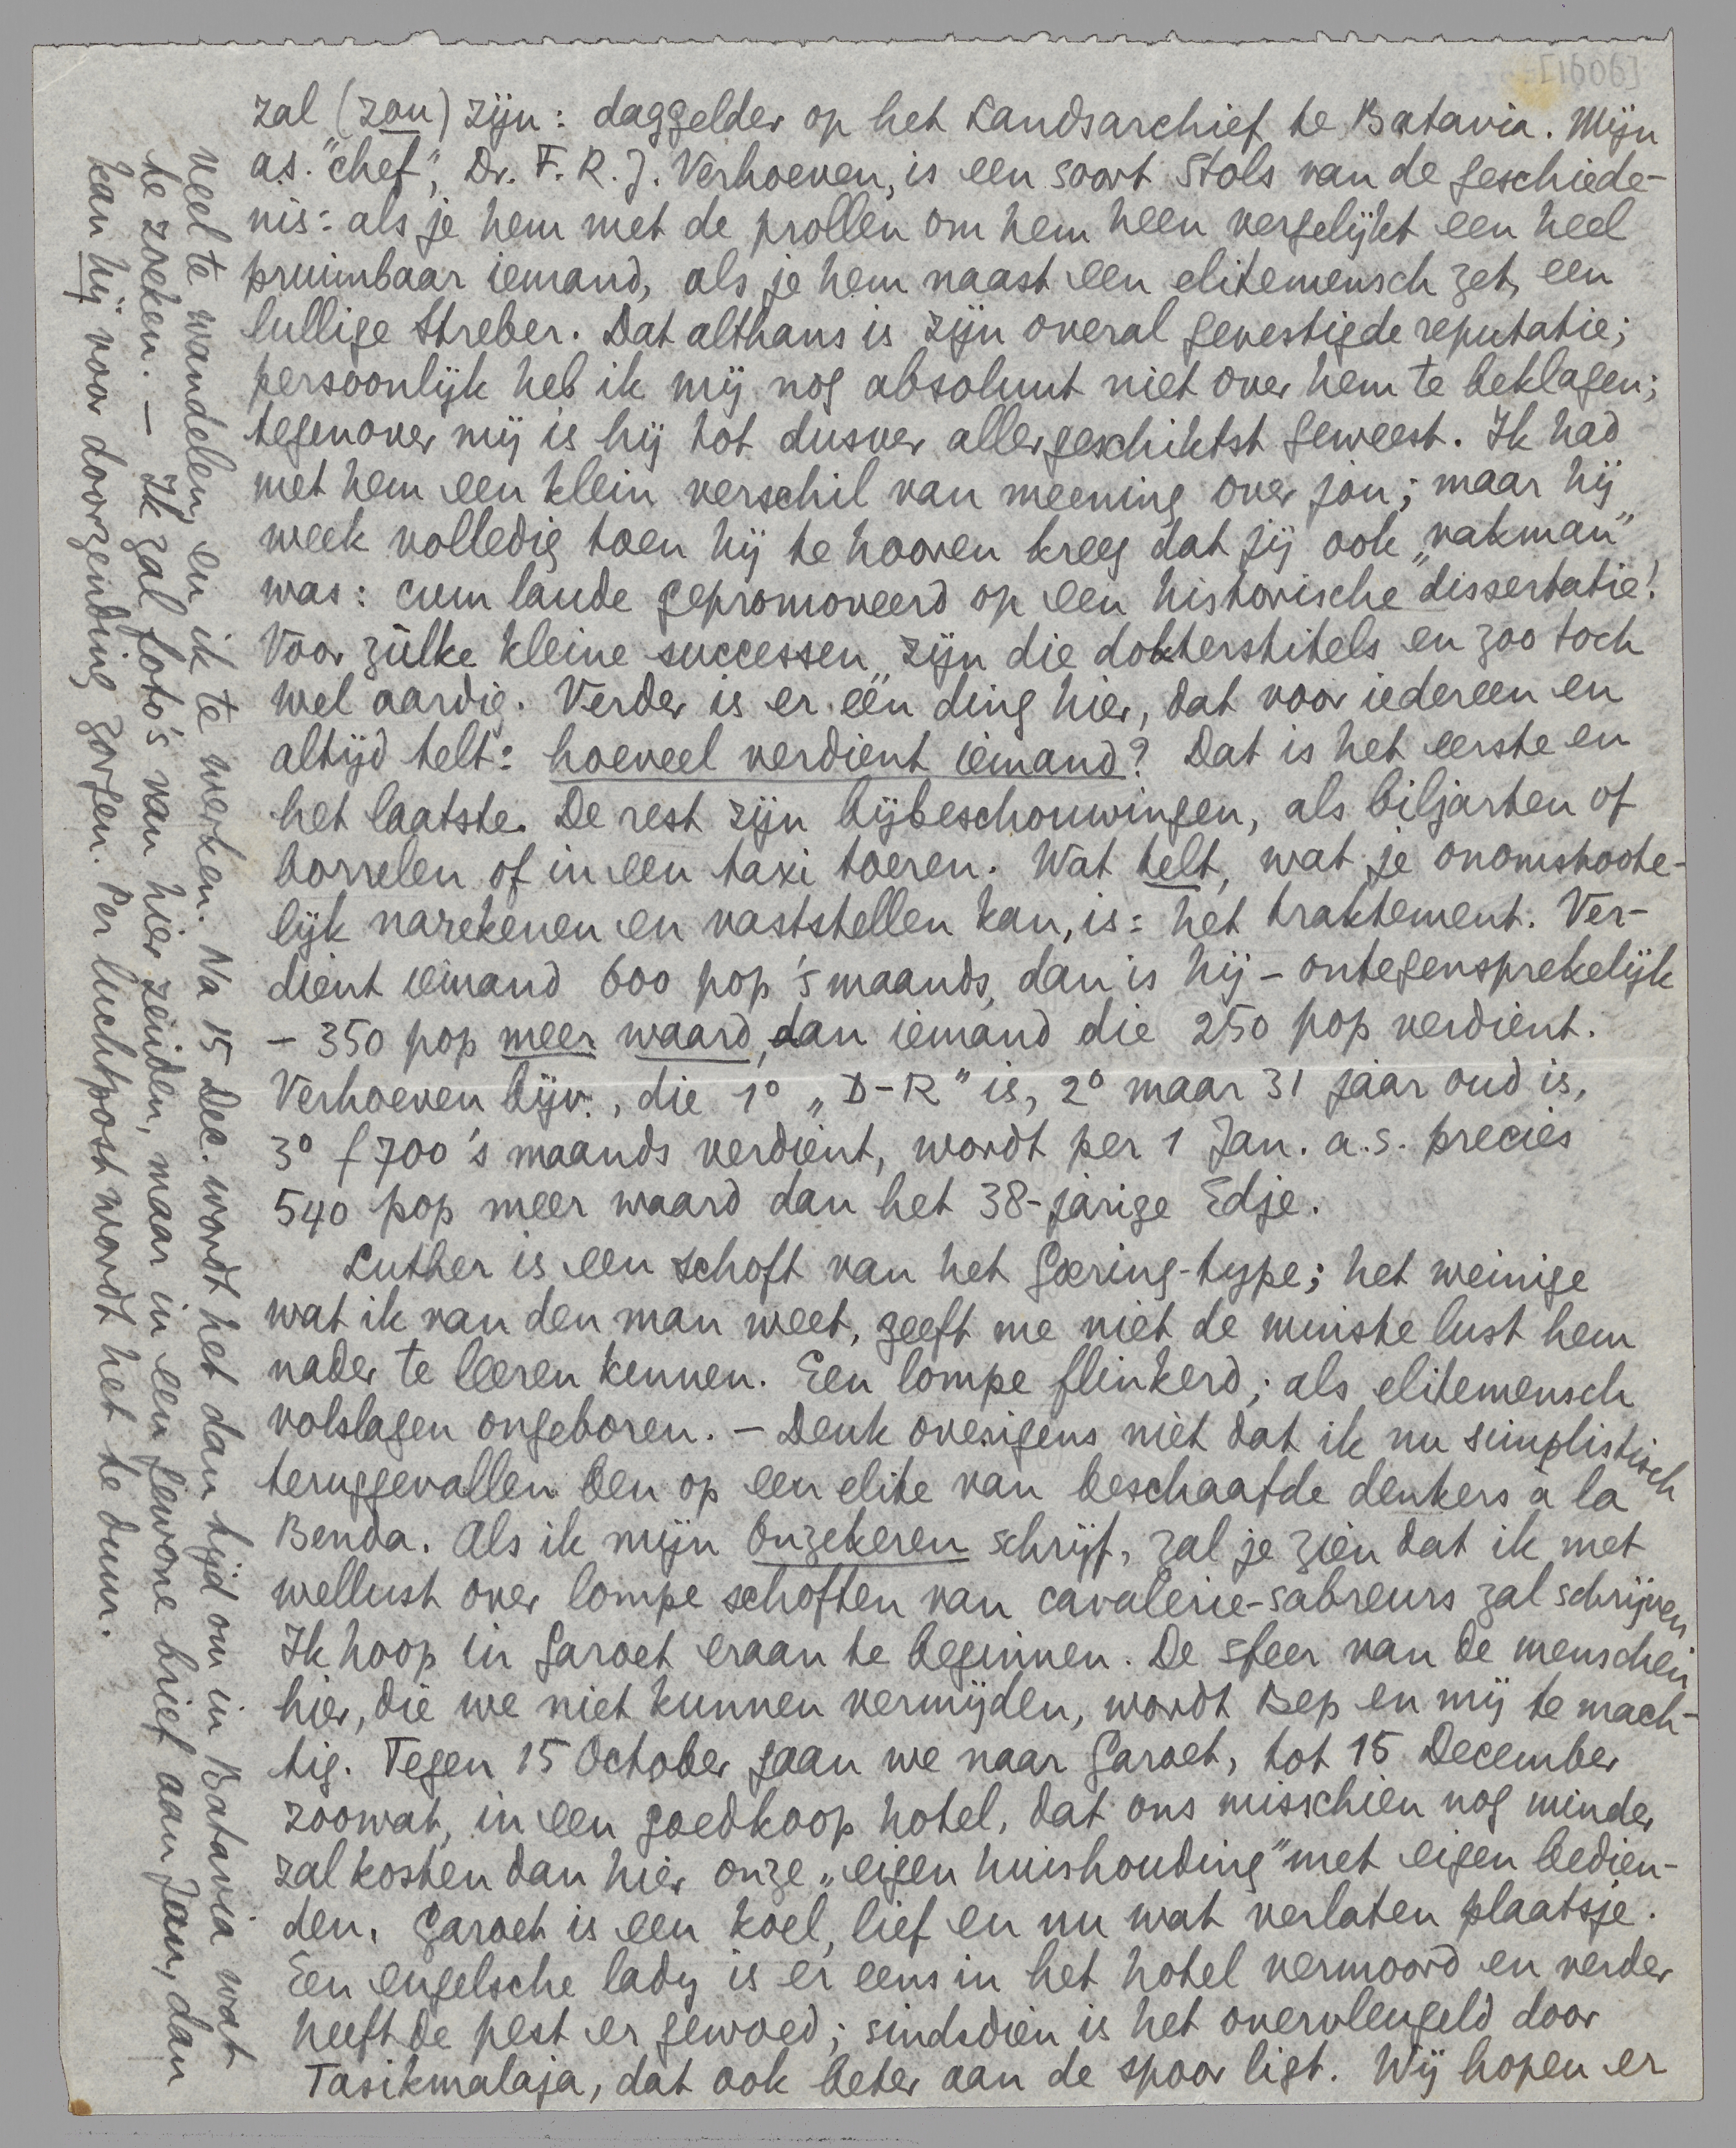 [1606]
zal (zou) zijn: daggelder op het Landsarchief te Batavia. Mijn
a.s. "chef", Dr. F. R. J. Verhoeven, is een soort Stols van de geschiede-
nis: als je hem met de prollen om hem heen vergelijkt een heel
pruimbaar iemand, als je hem naast een elitemensch zet, een
lullige Streber. Dat althans is zijn overal gevestigde reputatie;
persoonlijk heb ik mij nog absoluut niet over hem te beklagen;
tegenover mij is hij tot dusver allergeschiktst geweest. Ik had
met hem een klein verschil van meening over jou; maar hij
week volledig toen hij te hooren kreeg dat jij ook „vakman"
was: cum laude gepromoveerd op een historische dissertatie!
Voor zùlke kleine successen zijn die dokterstitels en zoo toch
wel aardig. Verder is er één ding hier, dat voor iedereen en
altijd telt: hoeveel verdient iemand? Dat is het eerste en
het laatste. De rest zijn bijbeschouwingen, als biljarten of
borrelen of in een taxi toeren. Wat telt, wat je onomstoote-
lijk narekenen en vaststellen kan, is: het traktement. Ver-
dient iemand 600 pop 's maands, dan is hij - ontegensprekelijk
- 350 pop meer waard, dan iemand die 250 pop verdient.
Verhoeven bijv., die 1° „D-R" is, 2° maar 31 jaar oud is,
3° f 700 's maands verdient, wordt per 1 Jan. a.s. precies
540 pop meer waard dan het 38-jarige Edje.
Luther is een schoft van het Goering-type; het weinige
wat ik van den man weet, geeft me niet de minste lust hem
nader te leeren kennen. Een lompe flinkerd; als elitemensch
volslagen ongeboren. - Denk overigens niet dat ik nu simplistisch
teruggevallen ben op een elite van beschaafde denkers à la
Benda. Als ik mijn Onzekeren schrijf, zal je zien dat ik met
wellust over lompe schoften van cavalerie-sabreurs zal schrijven.
Ik hoop in Garoet eraan te beginnen. De sfeer van de menschen
hier, die we niet kunnen vermijden, wordt Bep en mij te mach-
tig. Tegen 15 October gaan we naar Garoet, tot 15 December
zoowat, in een goedkoop hotel, dat ons misschien nog minder
zal kosten dan hier onze „eigen huishouding" met eigen bedien-
den. Garoet is een koel, lief en nu wat verlaten plaatsje.
Een engelsche lady is er eens in het hotel vermoord en verder
heeft de pest er gewoed; sindsdien is het overvleugeld door
Tasikmalaja, dat ook beter aan de spoor ligt. Wij hopen er
veel te wandelen, en ik te werken. Na 15 Dec. wordt het dan tijd om in Batavia wat
te zoeken. — Ik zal foto's van hier zenden, maar in een gewone brief aan Jan, dan
kan hij voor doorzending zorgen. Per luchtpost wordt het te duur.